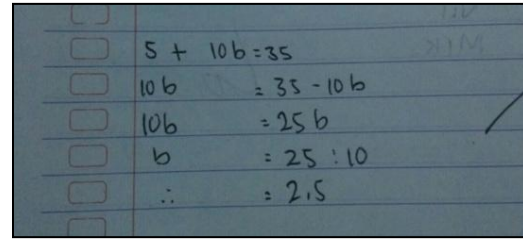 5 + 10b = 35
10b = 35 - 10b
10b = 25b
b = 25 : 10
∴ = 2,5